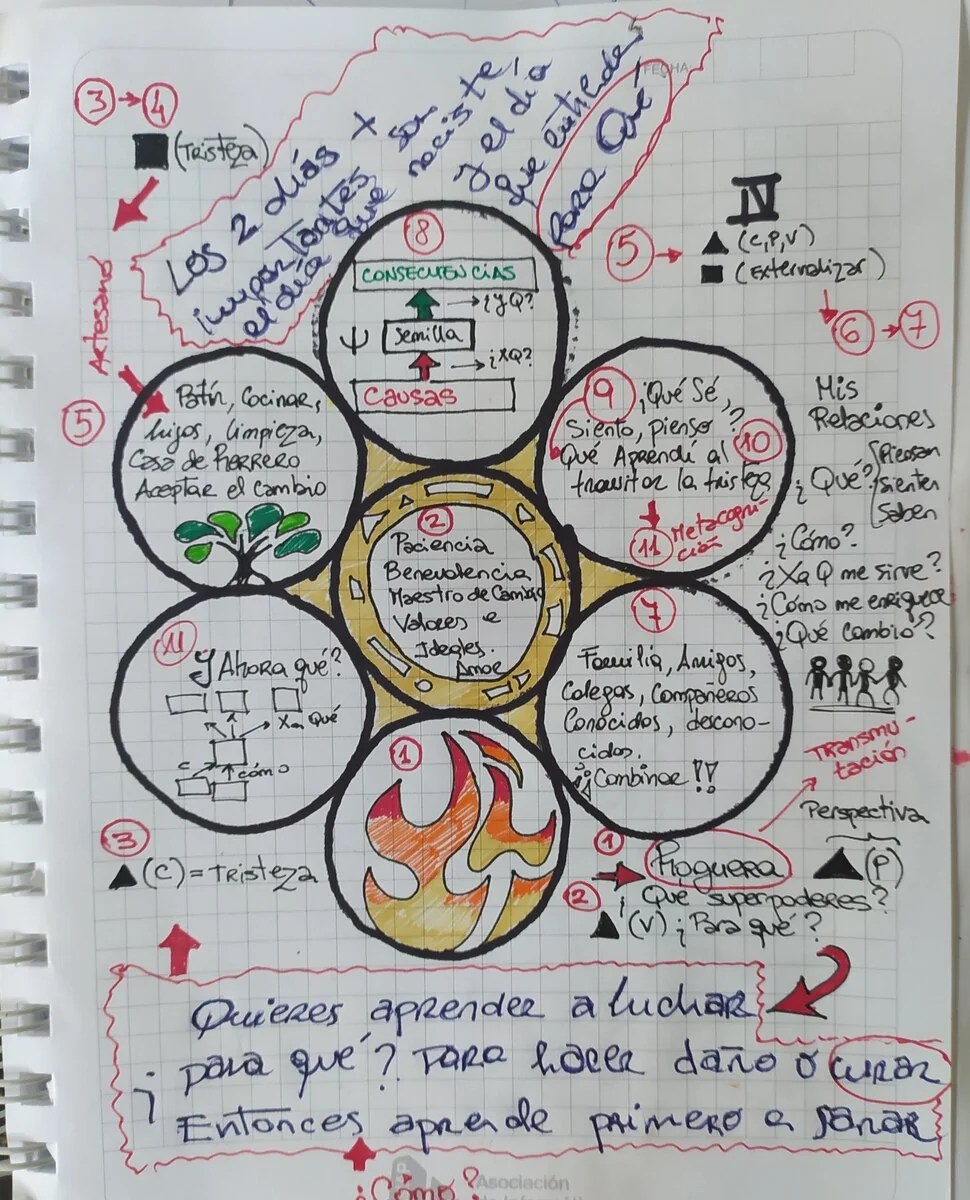 FECHA:
3 → 4
(Tristeza)
Los 2 días +
importantes son
el día que naciste
y el día
que entiendes
para qué!
Artesano
5
IV
5 →
(C, P, V)
(Externalizar)
6 → 7
8
CONSECUENCIAS
→ ¿y Q?
Ψ Semilla
→ ¿XQ?
CAUSAS
5
Patín, Cocinar,
hijos, Limpieza,
Casa de herrero
Aceptar el cambio
9 ¿Qué Sé,
Siento, pienso? 10
Qué Aprendí al
transitar la tristeza
11 Metacogni-
ción
Mis
Relaciones
¿Qué? Piensan
sienten
Saben
¿Cómo?
¿Xa Q me sirve?
¿Cómo me enriquece
¿Qué cambio?
2
Paciencia
Benevolencia
Maestro de Cambio
Valores e
Ideales.
Amor
11
Y Ahora qué?
Xa Qué
C
cómo
7
Familia, Amigos,
Colegas, Compañeros
Conocidos, descono-
cidos.
¡¡Combinar!!
1
Transmu-
tación
Perspectiva
3
(C) = Tristeza
1 → Hoguera
(P)
2 ¿Qué superpoderes?
(V) ¿Para qué?
Quieres aprender a luchar
¿para qué? Para hacer daño o curar
Entonces aprende primero a sanar
¿Cómo?
Asociación